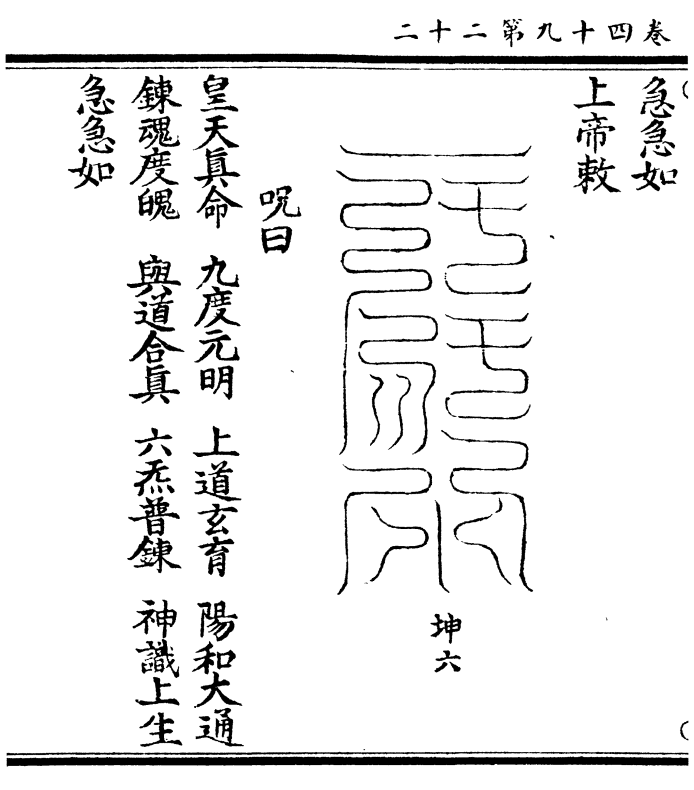 卷四十九第二十二
急急如
上帝敕
坤六
呪曰
皇天眞命 九度元明 上道玄育 陽和大通
鍊魂度魄 與道合眞 六炁普鍊 神識上生
急急如